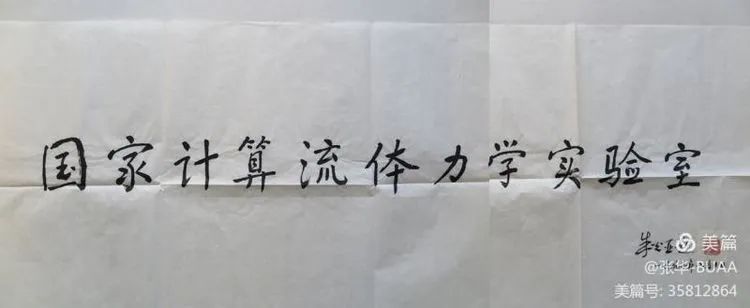 国家计算流体力学实验室
美篇
@张华 BUAA
美篇号: 35812864